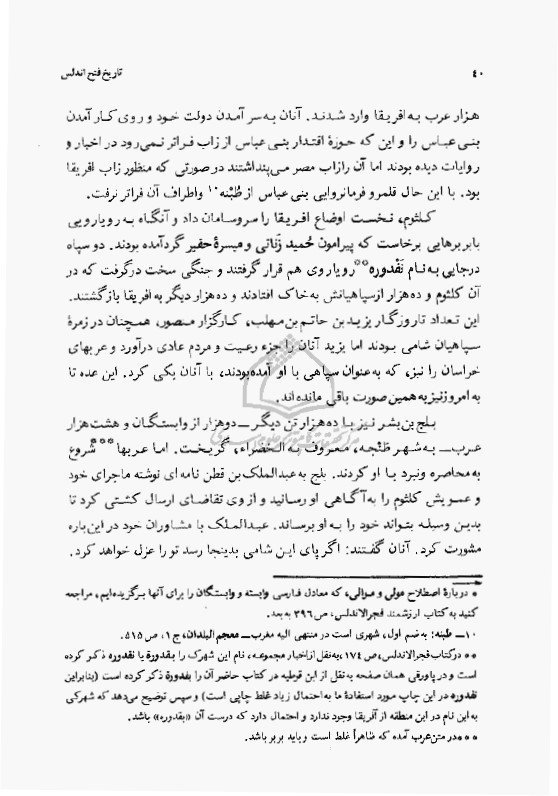 ۴۰
تاریخ فتح اندلس
هزار عرب به افریقا وارد شدند. آنان به سر آمدن دولت خود و روی کار آمدن
بنی عباس را و این که حوزهٔ اقتدار بنی عباس از زاب فراتر نمی‌رود در اخبار و
روایات دیده بودند اما آن را زاب مصر می‌پنداشتند در صورتی که منظور زاب افریقا
بود. با این حال قلمرو فرمانروایی بنی عباس از طُبْنه۱۰ و اطراف آن فراتر نرفت.
کلثوم، نخست اوضاع افریقا را سر و سامان داد و آنگاه به رویارویی
با بربرهایی برخاست که پیرامون حُمید زَناتی و میسرهٔ حفیر گرد آمده بودند. دو سپاه
در جایی به نام نَقْدوره** رویاروی هم قرار گرفتند و جنگی سخت درگرفت که در
آن کلثوم و ده هزار از سپاهیانش به خاک افتادند و ده هزار دیگر به افریقا بازگشتند.
این تعداد تا روزگار یزید بن حاتم بن مهلب، کارگزار منصور، همچنان در زمرهٔ
سپاهیان شامی بودند اما یزید آنان را جزء رعیت و مردم عادی درآورد و عربهای
خراسان را نیز، که به‌عنوان سپاهی با او آمده بودند، با آنان یکی کرد. این عده تا
به امروز نیز به همین صورت باقی مانده‌اند.
بلج بن بشر نیز با ده هزار تن دیگر ــ دو هزار از وابستگان و هشت هزار
عرب ــ به شهر طَنْجه، معروف به الخضراء، گریخت. اما عربها*** شروع
به محاصره و نبرد با او کردند. بلج به عبدالملک بن قطن نامه‌ای نوشته ماجرای خود
و عمویش کلثوم را به آگاهی او رسانید و از وی تقاضای ارسال کشتی کرد تا
بدین وسیله بتواند خود را به او برساند. عبدالملک با مشاوران خود در این باره
مشورت کرد. آنان گفتند: اگر پای این شامی بدینجا رسد تو را عزل خواهد کرد.
* دربارهٔ اصطلاح مولی و موالی، که معادل فارسی وابسته و وابستگان را برای آنها برگزیده‌ایم، مراجعه
کنید به کتاب ارزشمند فجرالاندلس، ص ۳۹۶ به بعد.
۱۰ــ طبنه: به ضم اول، شهری است در منتهی الیه مغرب ــ معجم البلدان، ج ۱، ص ۵۱۵.
** در کتاب فجرالاندلس، ص ۱۷۴، به نقل از اخبار مجموعه، نام این شهرک را بقدورة یا نقدوره ذکر کرده
است و در پاورقی همان صفحه به نقل از ابن قوطیه در کتاب حاضر آن را بقدورة ذکر کرده است (بنابراین
نقدوره در این چاپ مورد استفادهٔ ما به احتمال زیاد غلط چاپی است) و سپس توضیح می‌دهد که شهرکی
به این نام در این منطقه از آفریقا وجود ندارد و احتمال دارد که درست آن «بقدوره» باشد.
*** در متن عرب آمده که ظاهراً غلط است و باید بربر باشد.